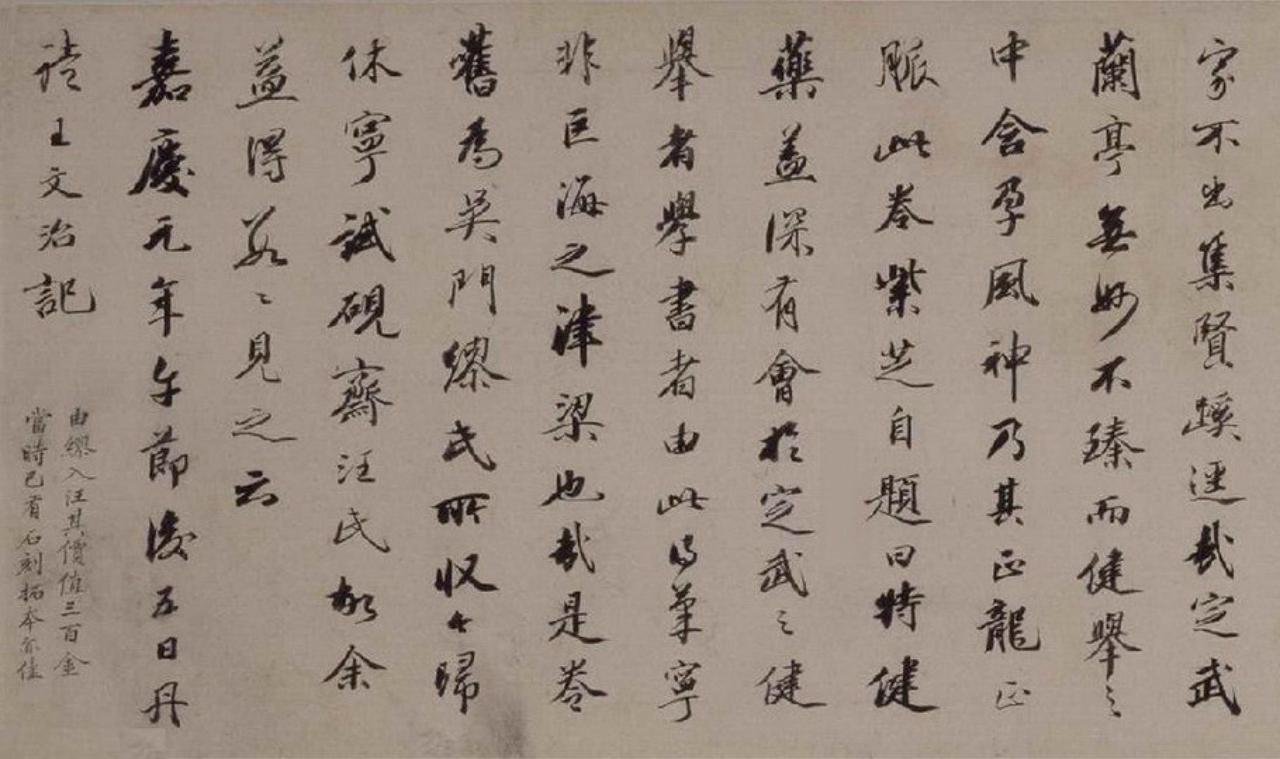 家不出集賢蹊逕哉定武
蘭亭無妙不臻而健舉之
中含孕風神乃其正龍正
脈此卷紫芝自題曰特健
藥盖深有會於定武之健
舉者學書者由此得筆寧
非巨海之津梁也哉是卷
舊為吳門繆氏所収今歸
休寧試硯齋汪氏故余
盖得數〻見之云
嘉慶元年午節後五日丹
徒王文治記
由繆入汪其價值三百金
當時已有石刻拓本亦佳